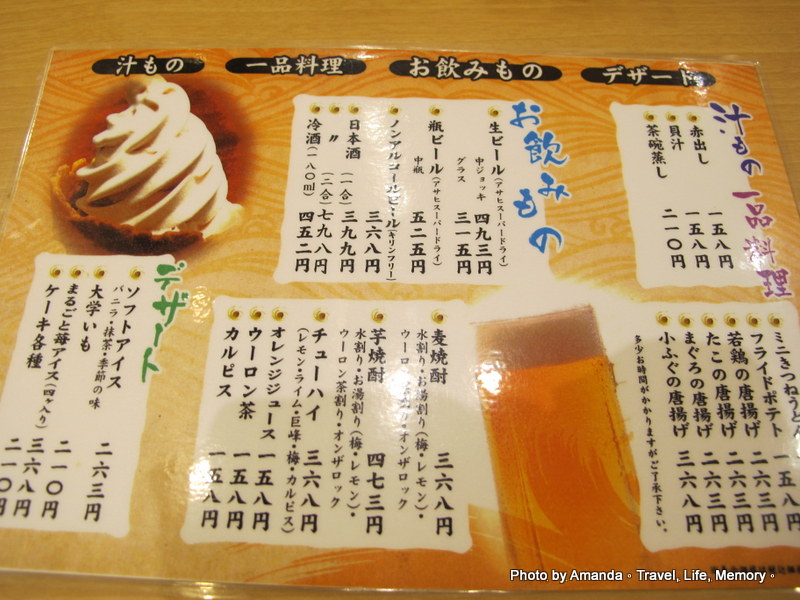 汁もの
一品料理
お飲みもの
デザート
汁もの 一品料理
赤出し 一五八円
貝汁 一五八円
茶碗蒸し 二一〇円
ミニきつねうどん 一五八円
フライドポテト 二六三円
若鶏の唐揚げ 二六三円
たこの唐揚げ 二六三円
まぐろの唐揚げ 二六三円
小ふぐの唐揚げ 三六八円
多少お時間がかかりますがご了承下さい。
お飲みもの
生ビール(アサヒスーパードライ)
中ジョッキ 四九三円
グラス 三一五円
瓶ビール(アサヒスーパードライ)
中瓶 五二五円
ノンアルコールビール(キリンフリー)
三六八円
日本酒 (一合) 三九九円
〃 (二合) 七九八円
冷酒(一八〇ml) 四五二円
麦焼酎 三六八円
水割り・お湯割り(梅・レモン)・
ウーロン茶割り・オンザロック
芋焼酎 四七三円
水割り・お湯割り(梅・レモン)・
ウーロン茶割り・オンザロック
チューハイ 三六八円
(レモン・ライム・巨峰・梅・カルピス)
オレンジジュース 一五八円
ウーロン茶 一五八円
カルピス 一五八円
デザート
ソフトアイス 二六三円
バニラ・抹茶・季節の味
大学いも 二一〇円
まるごと苺アイス(四ヶ入り) 三六八円
ケーキ各種 二一〇円
Photo by Amanda。Travel, Life, Memory。